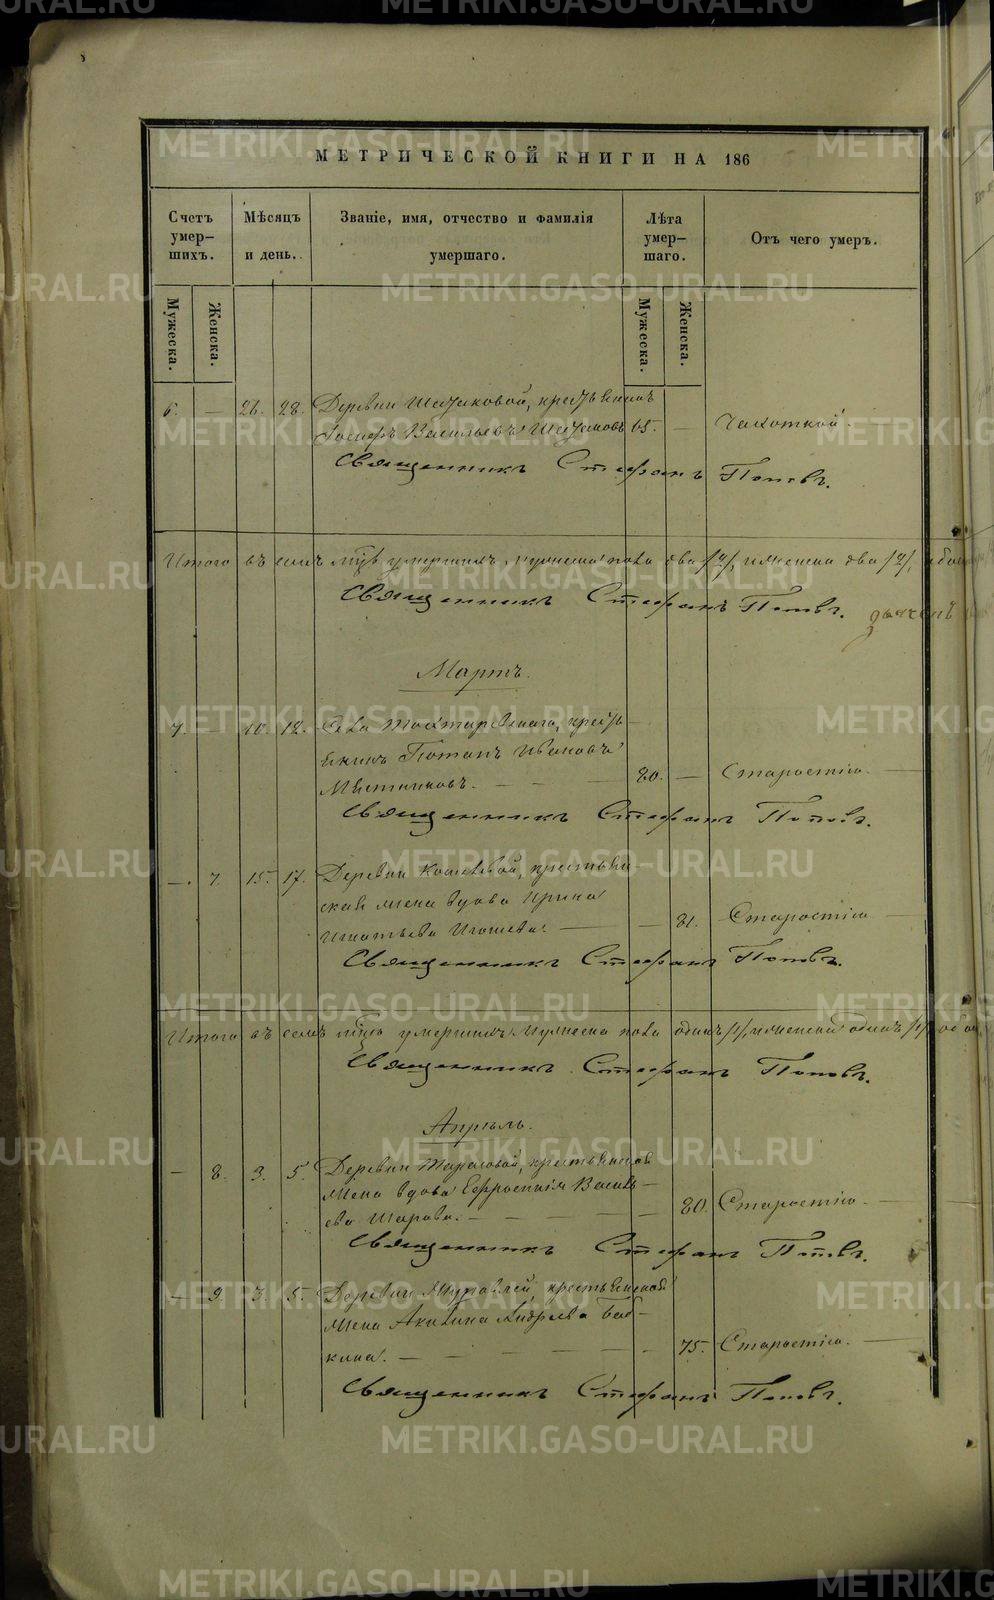 METRIKI.GASO-URAL.RU
МЕТРИЧЕСКОЙ КНИГИ НА 186
Счетъ умер-шихъ.
Мѣсяцъ и день.
Званіе, имя, отчество и фамилія умершаго.
Лѣта умер-шаго.
Отъ чего умеръ.
Мужеска.
Женска.
Мужеска.
Женска.
6. — 26. 28. Деревни крестьянинъ
Іосифъ Васильевъ 65. — Чахоткой.
Священникъ Стефанъ Поповъ.
Итого въ семъ умершихъ мужеска пола два /2/, женска два /2/,
Священникъ Стефанъ Поповъ.
Мартъ.
7. — 10. 12. Села кресть-
янинъ Потапъ Ивановъ
Мѣстниковъ. — 80. — Старостію. —
Священникъ Стефанъ Поповъ.
—. 7. 15. 17. Деревни крестьян-
ская жена вдова Ирина
Игнатьева — — 81. Старостію —
Священникъ Стефанъ Поповъ.
Итого въ семъ умершихъ мужеска пола одинъ /1/, женска одинъ /1/,
Священникъ Стефанъ Поповъ.
Апрѣль.
— 8. 3. 5. Деревни Тарасовой, крестьянская
жена вдова Евфросинія Василь-
ева Шарова. — — 80. Старостію —
Священникъ Стефанъ Поповъ.
— 9. 3. 5. Деревни крестьянская
жена Акилина Андреева
кина. — — 75. Старостію. —
Священникъ Стефанъ Поповъ.